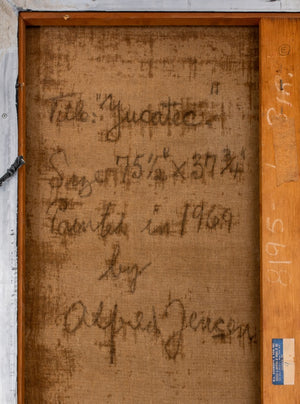 Title: "Yucatec"
Size 75½" x 37¾"
Painted in 1960
by
Alfred Jensen
8195-1 3/A.